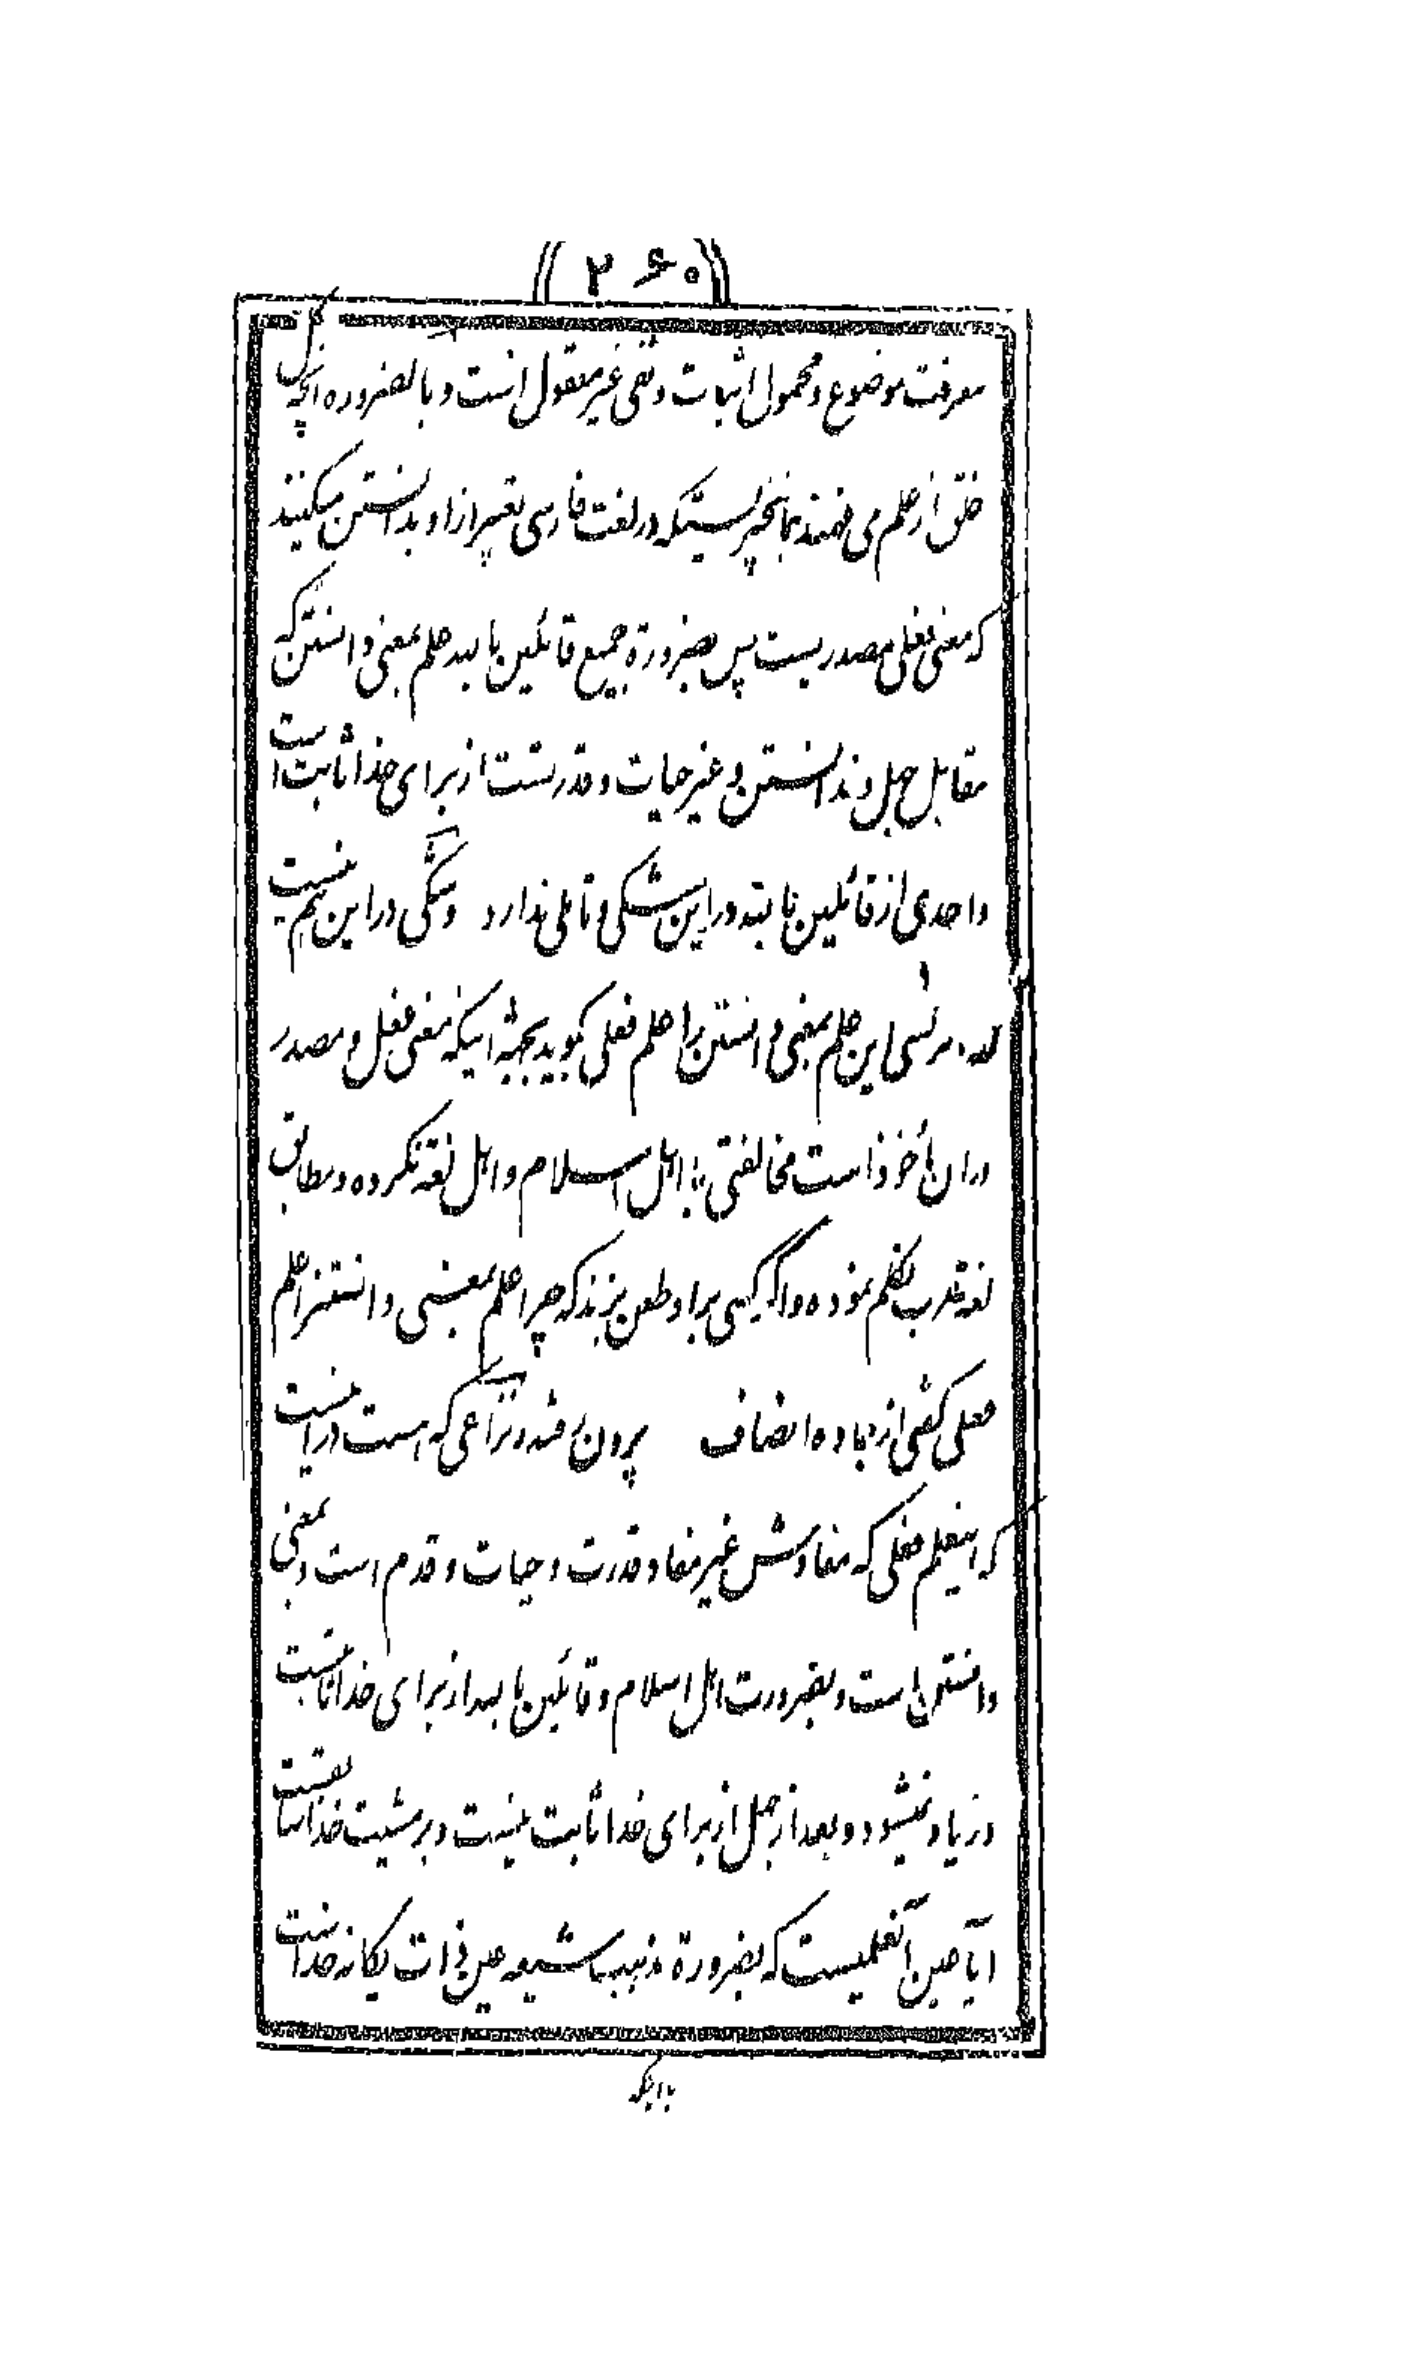 (( ۲۶۰ ))
معرفت موضوع و محمول اثبات و نفی غیر معقول است و بالضروره آنچه کل
خلق از علم می فهمند همانچیزیستیکه در لغت فارسی تعبیر از او بدانستن میکنند
که معنی فعلی مصدریست پس بضرورة جمیع قائلین باید علم بمعنی دانستن که
مقابل جهل و ندانستن و غیر حیات و قدرتست از برای خدا ثابت است
واحدی از قائلین بابتد در این شکی و تاملی ندارد وشکی در این هم نیست
که هر کسی این علم بمعنی دانستن را علم فعلی گوید بجهة اینکه معنی فعل و مصدر
در ان مأخوذ است مخالفتی با اهل اسلام و اهل لغة نکرده و مطابق
لغة عرب تکلم نموده و اگر کسی بر او طعن بزند که چرا علم بمعنی دانستنرا علم
فعلی گفتی از جاده انصاف بیرون رفته و نزاعی که هست در اینست
که اینعلم فعلی که مفادش غیر مفاد قدرت و حیات و قدم است و بمعنی
دانستن است و بضرورت اهل اسلام و قائلین باید از برای خدا ثابتست
و زیاد نمیشود و بعد از جهل از برای خدا ثابت نیست و بر مشیت خدا سابقست
ایا عین آنعلمیست که بضرورة مذهب شیعه عین ذات یگانه خداست
با اینکه